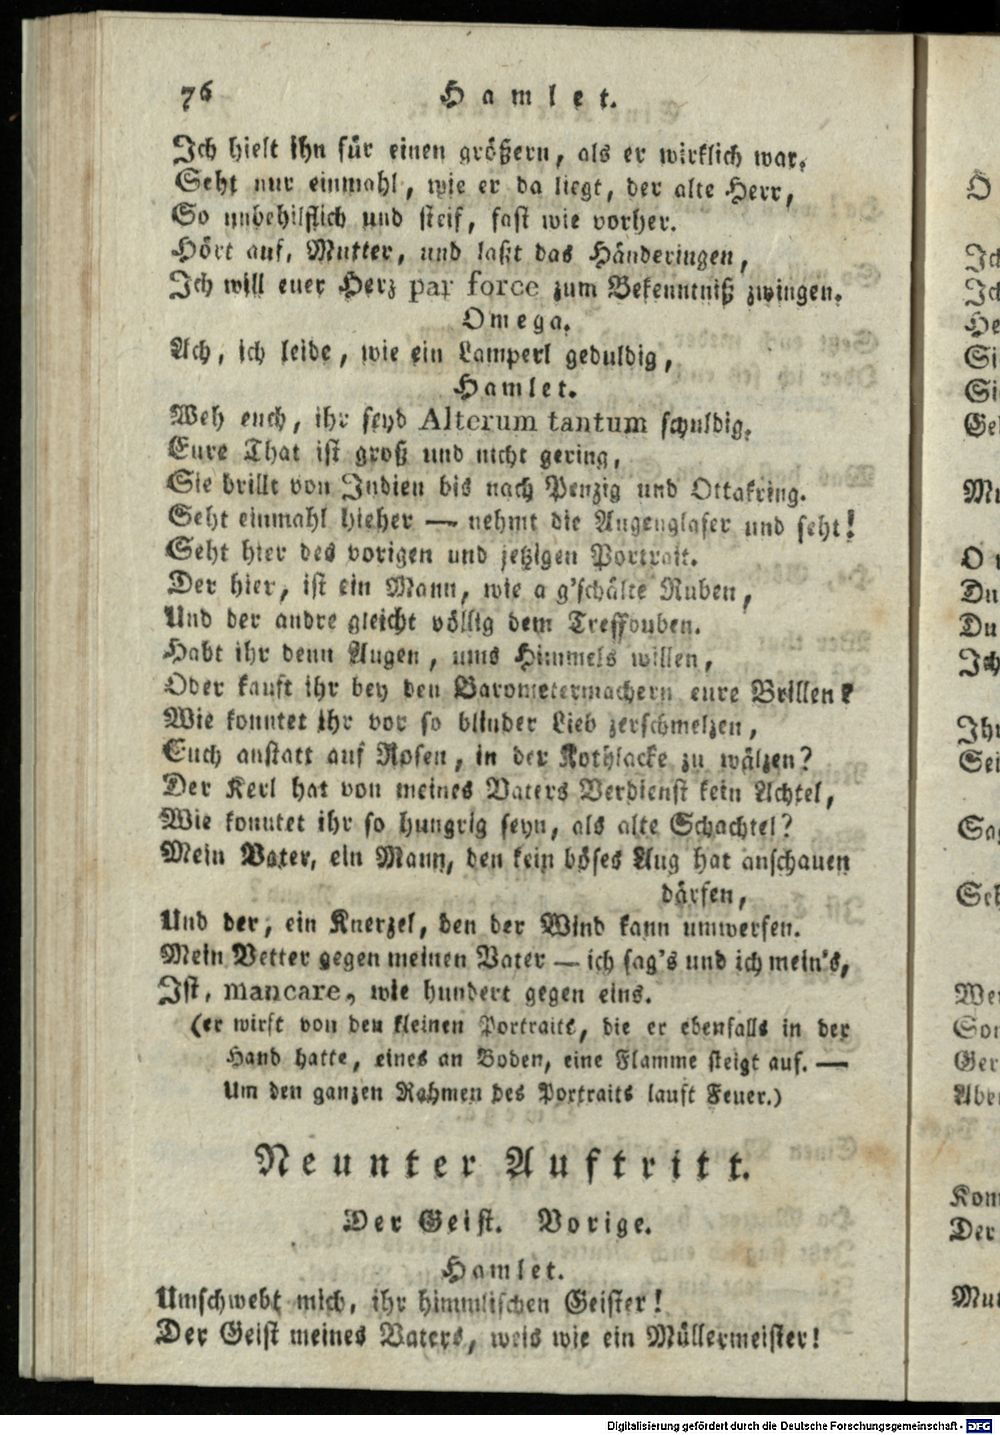 76 Hamlet.
Ich hielt ihn für einen größern, als er wirklich war.
Seht nur einmahl, wie er da liegt, der alte Herr,
So unbehilflich und steif, fast wie vorher.
Hört auf, Mutter, und laßt das Händeringen,
Ich will euer Herz par force zum Bekenntniß zwingen.
Omega.
Ach, ich leide, wie ein Lamperl geduldig,
Hamlet.
Weh euch, ihr seyd Alterum tantum schuldig.
Eure That ist groß und nicht gering,
Sie brillt von Indien bis nach Penzig und Ottakring.
Seht einmahl hieher — nehmt die Augengläser und seht!
Seht hier des vorigen und jetzigen Portrait.
Der hier, ist ein Mann, wie a g'schälte Ruben,
Und der andre gleicht völlig dem Treffbuben.
Habt ihr denn Augen, ums Himmels willen,
Oder kauft ihr bey den Barometermachern eure Brillen?
Wie konntet ihr vor so blinder Lieb zerschmelzen,
Euch anstatt auf Rosen, in der Kothlacke zu wälzen?
Der Kerl hat von meines Vaters Verdienst kein Achtel,
Wie konntet ihr so hungrig seyn, als alte Schachtel?
Mein Vater, ein Mann, den kein böses Aug hat anschauen
därfen,
Und der, ein Knerzel, den der Wind kann umwerfen.
Mein Vetter gegen meinen Vater — ich sag's und ich mein's,
Ist, mancare, wie hundert gegen eins.
(er wirft von den kleinen Portraits, die er ebenfalls in der
Hand hatte, eines an Boden, eine Flamme steigt auf. —
Um den ganzen Rahmen des Portraits lauft Feuer.)
Neunter Auftritt.
Der Geist. Vorige.
Hamlet.
Umschwebt mich, ihr himmlischen Geister!
Der Geist meines Vaters, weis wie ein Müllermeister!
Digitalisierung gefördert durch die Deutsche Forschungsgemeinschaft - DFG